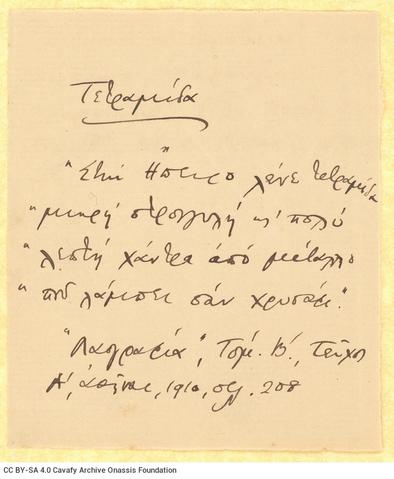 Τετραμίδα
"Στην Ήπειρο λένε τετραμίδα
"μικρή στρογγυλή κι' πολύ
"λεπτή χάντρα από μέταλλο
"που λάμπει σαν χρυσάφι".
"Λαογραφία", Τομ. Β', Τεύχος
Α', Αθήναι, 1910, σελ. 208
CC BY-SA 4.0 Cavafy Archive Onassis Foundation